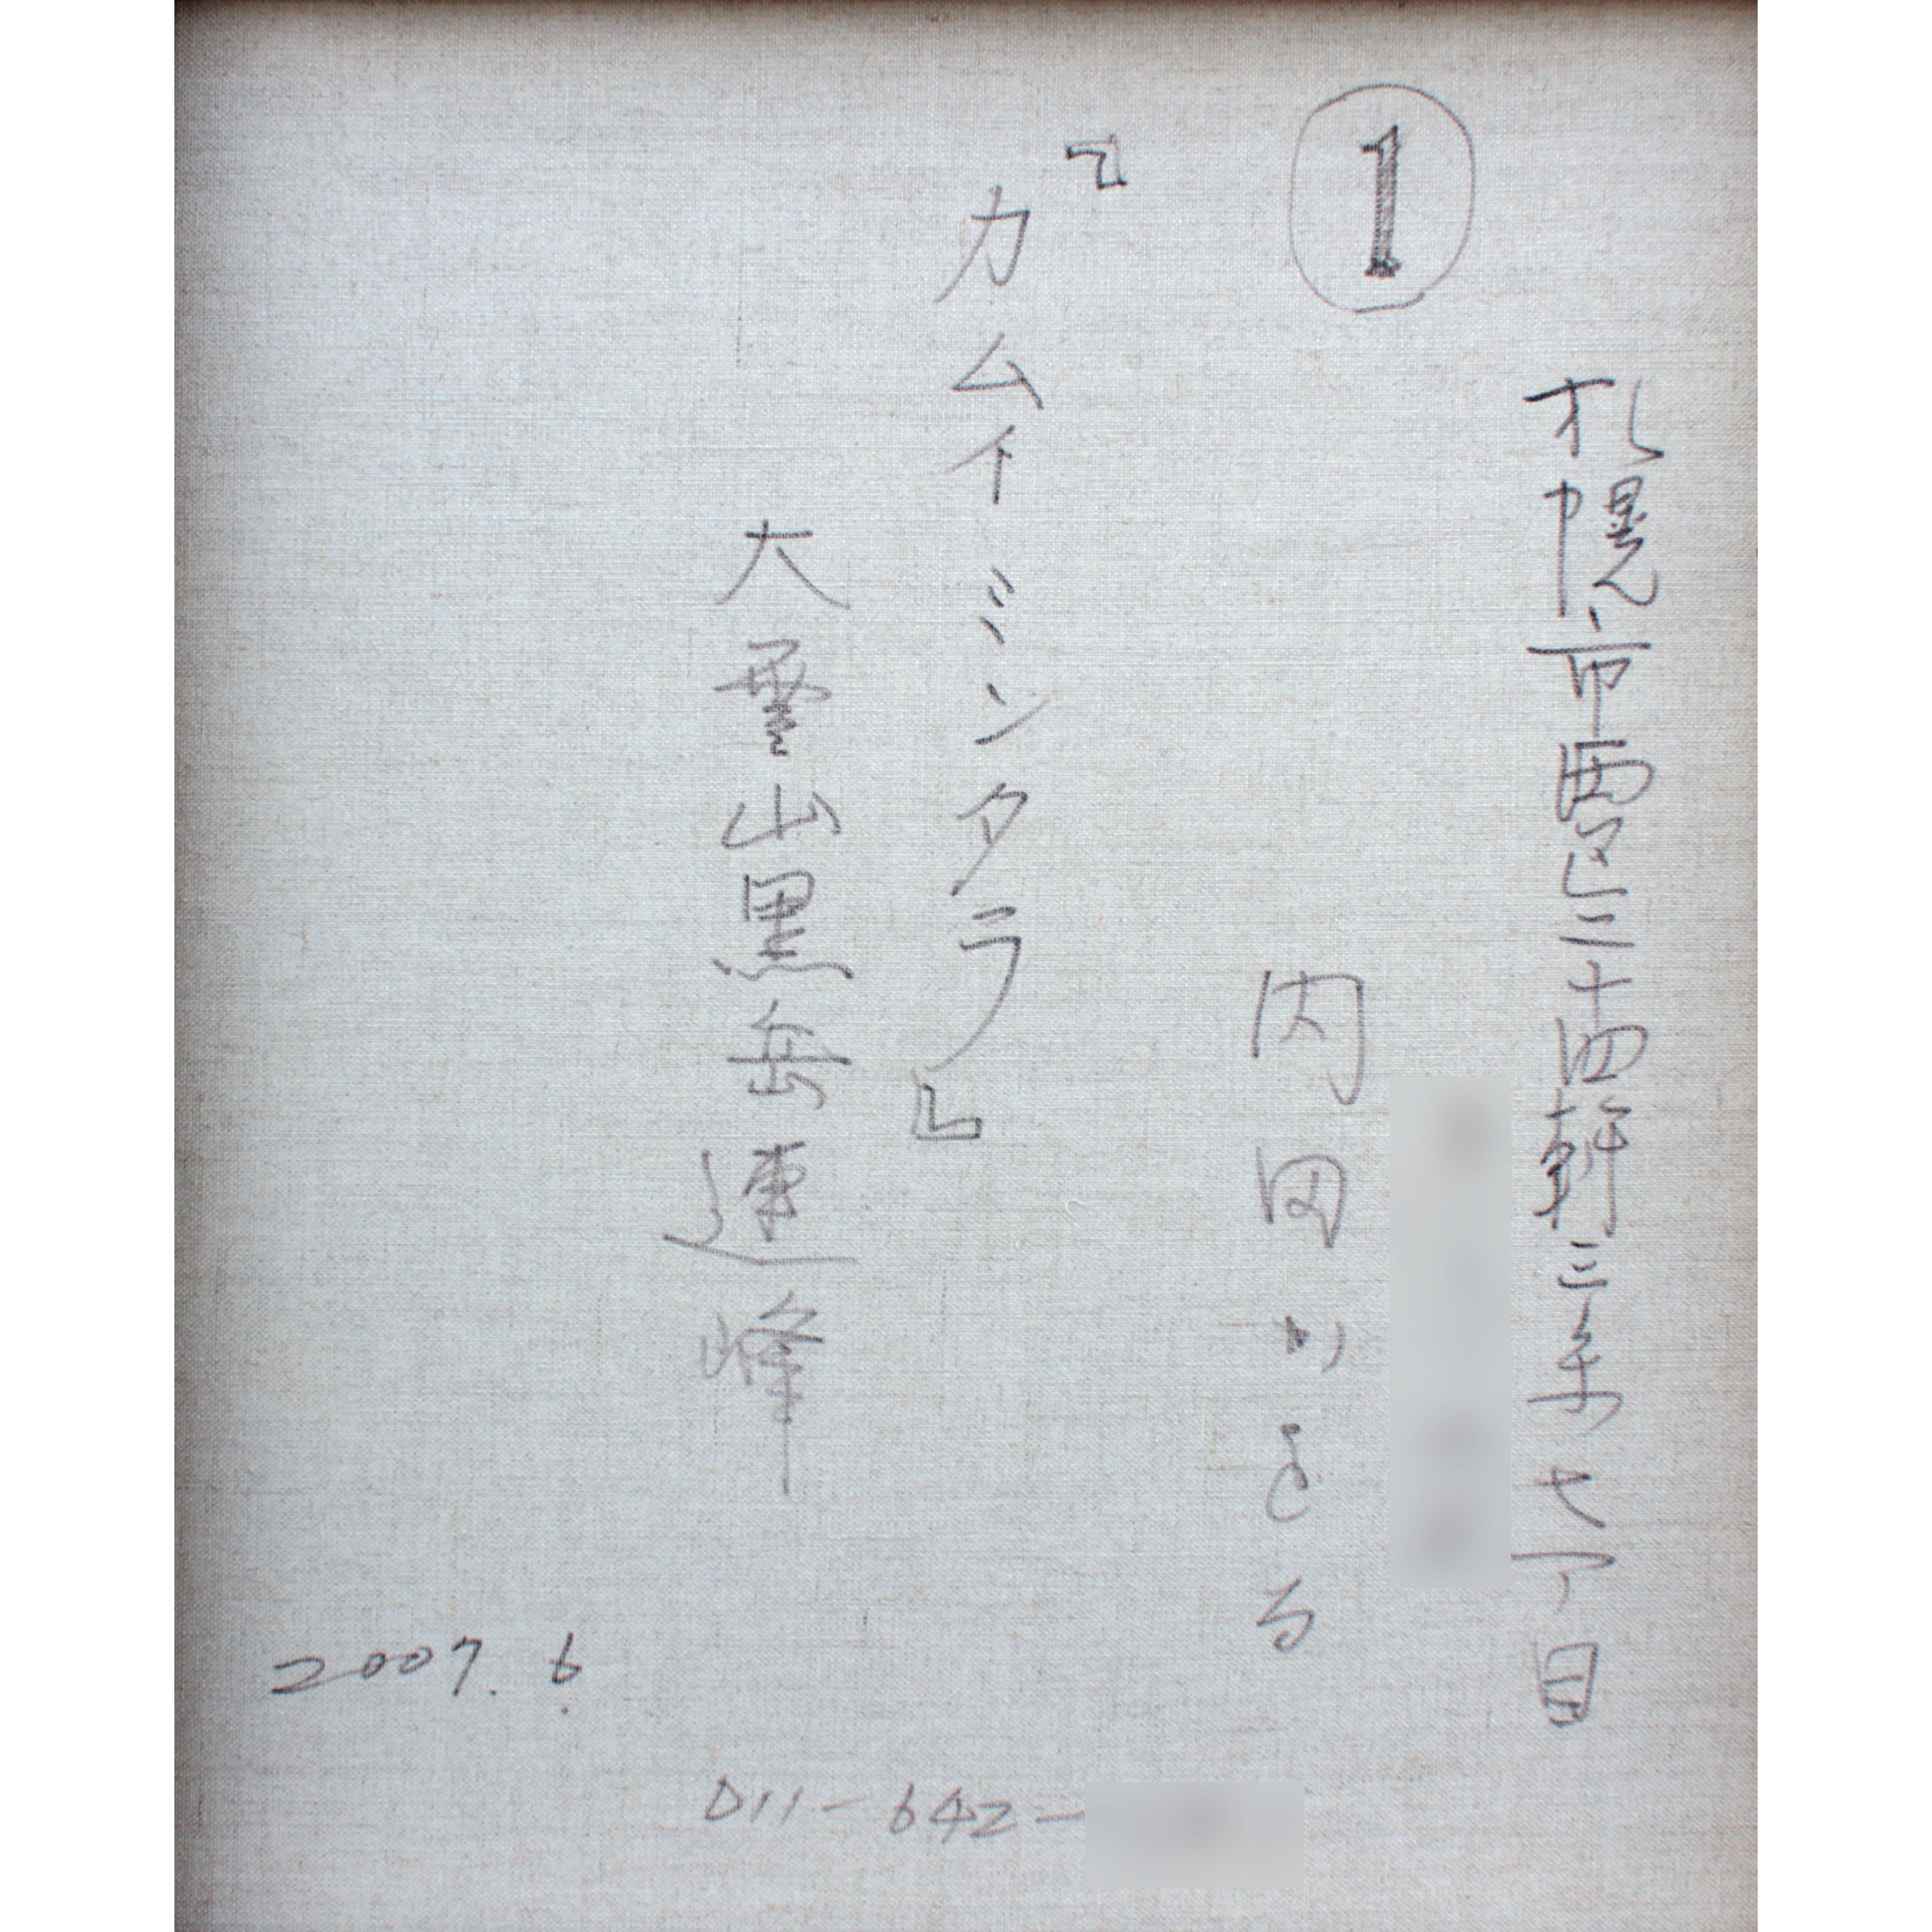 ①
札幌市西区二十四軒三条七丁目
内田かをる
『カムイミンタラ』
大雪山黒岳連峰
2007.6.
011-642-